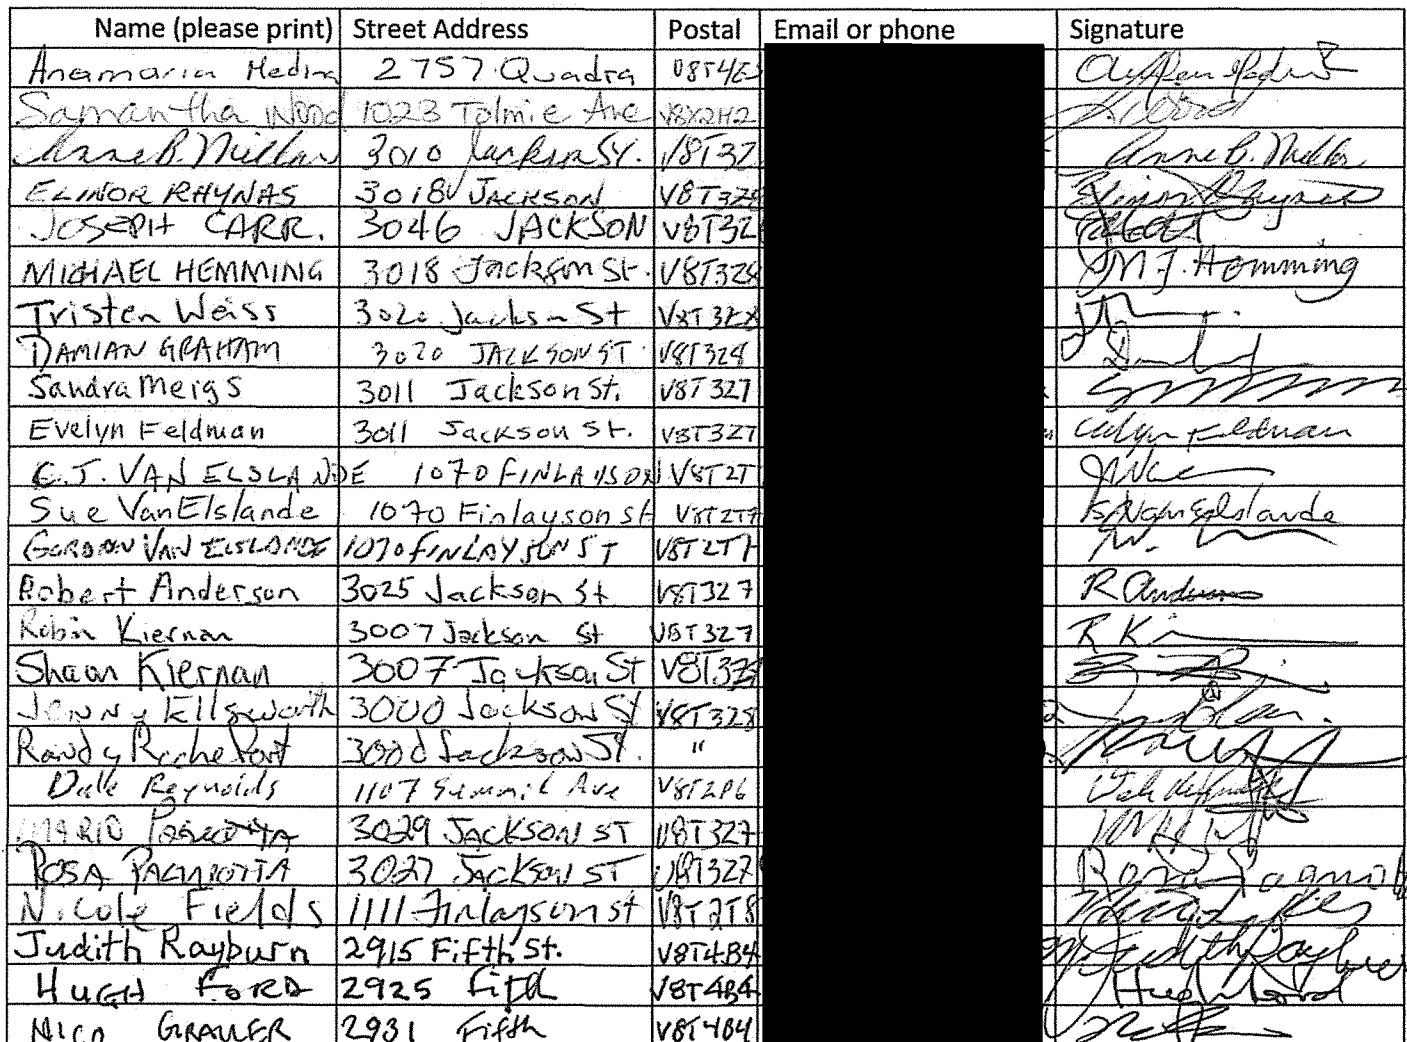 Name (please print) Street Address Postal Email or phone Signature
Anamaria Medina 2757 Quadra V8T4E
Samantha Wood 1023 Tolmie Ave V8X2H2 Wood
Anne B. Millar 3010 Jackson St. V8T3Z Anne B. Millar
ELINOR RHYNAS 3018 JACKSON V8T3Z8 Elinor Rhynas
JOSEPH CARR. 3046 JACKSON V8T3Z
MICHAEL HEMMING 3018 Jackson St. V8T3Z8 M J. Hemming
Tristen Weiss 3020 Jackson St V8T3Z8
DAMIAN GRAHAM 3020 JACKSON ST V8T3Z8
Sandra Meigs 3011 Jackson St. V8T3Z7
Evelyn Feldman 3011 Jackson St. V8T3Z7 Evelyn Feldman
C.J. VAN ELSLANDE 1070 FINLAYSON V8T2T
Sue VanElslande 1070 Finlayson st V8T2T7 S VanElslande
GORDON VAN ELSLANDE 1070 FINLAYSON ST V8T2T7
Robert Anderson 3025 Jackson St V8T3Z7 R Anderson
Robin Kiernan 3007 Jackson St V8T3Z7 R K
Shaan Kiernan 3007 Jackson St V8T3Z
Jenny Ellsworth 3000 Jackson St V8T3Z8
Randy Rochefort 3000 Jackson St. "
Dale Reynolds 1107 Summit Ave V8T2P6
MARIO 3029 JACKSON ST V8T3Z7
ROSA PAGNOTTA 3027 JACKSON ST V8T3Z7 Rosa Pagnott
Nicole Fields 1111 Finlayson st V8T2T8
Judith Rayburn 2915 Fifth St. V8T4B4 Judith Rayburn
HUGH FORD 2925 Fifth V8T4B4 Hugh Ford
NICO GRAUER 2931 Fifth V8T4B4